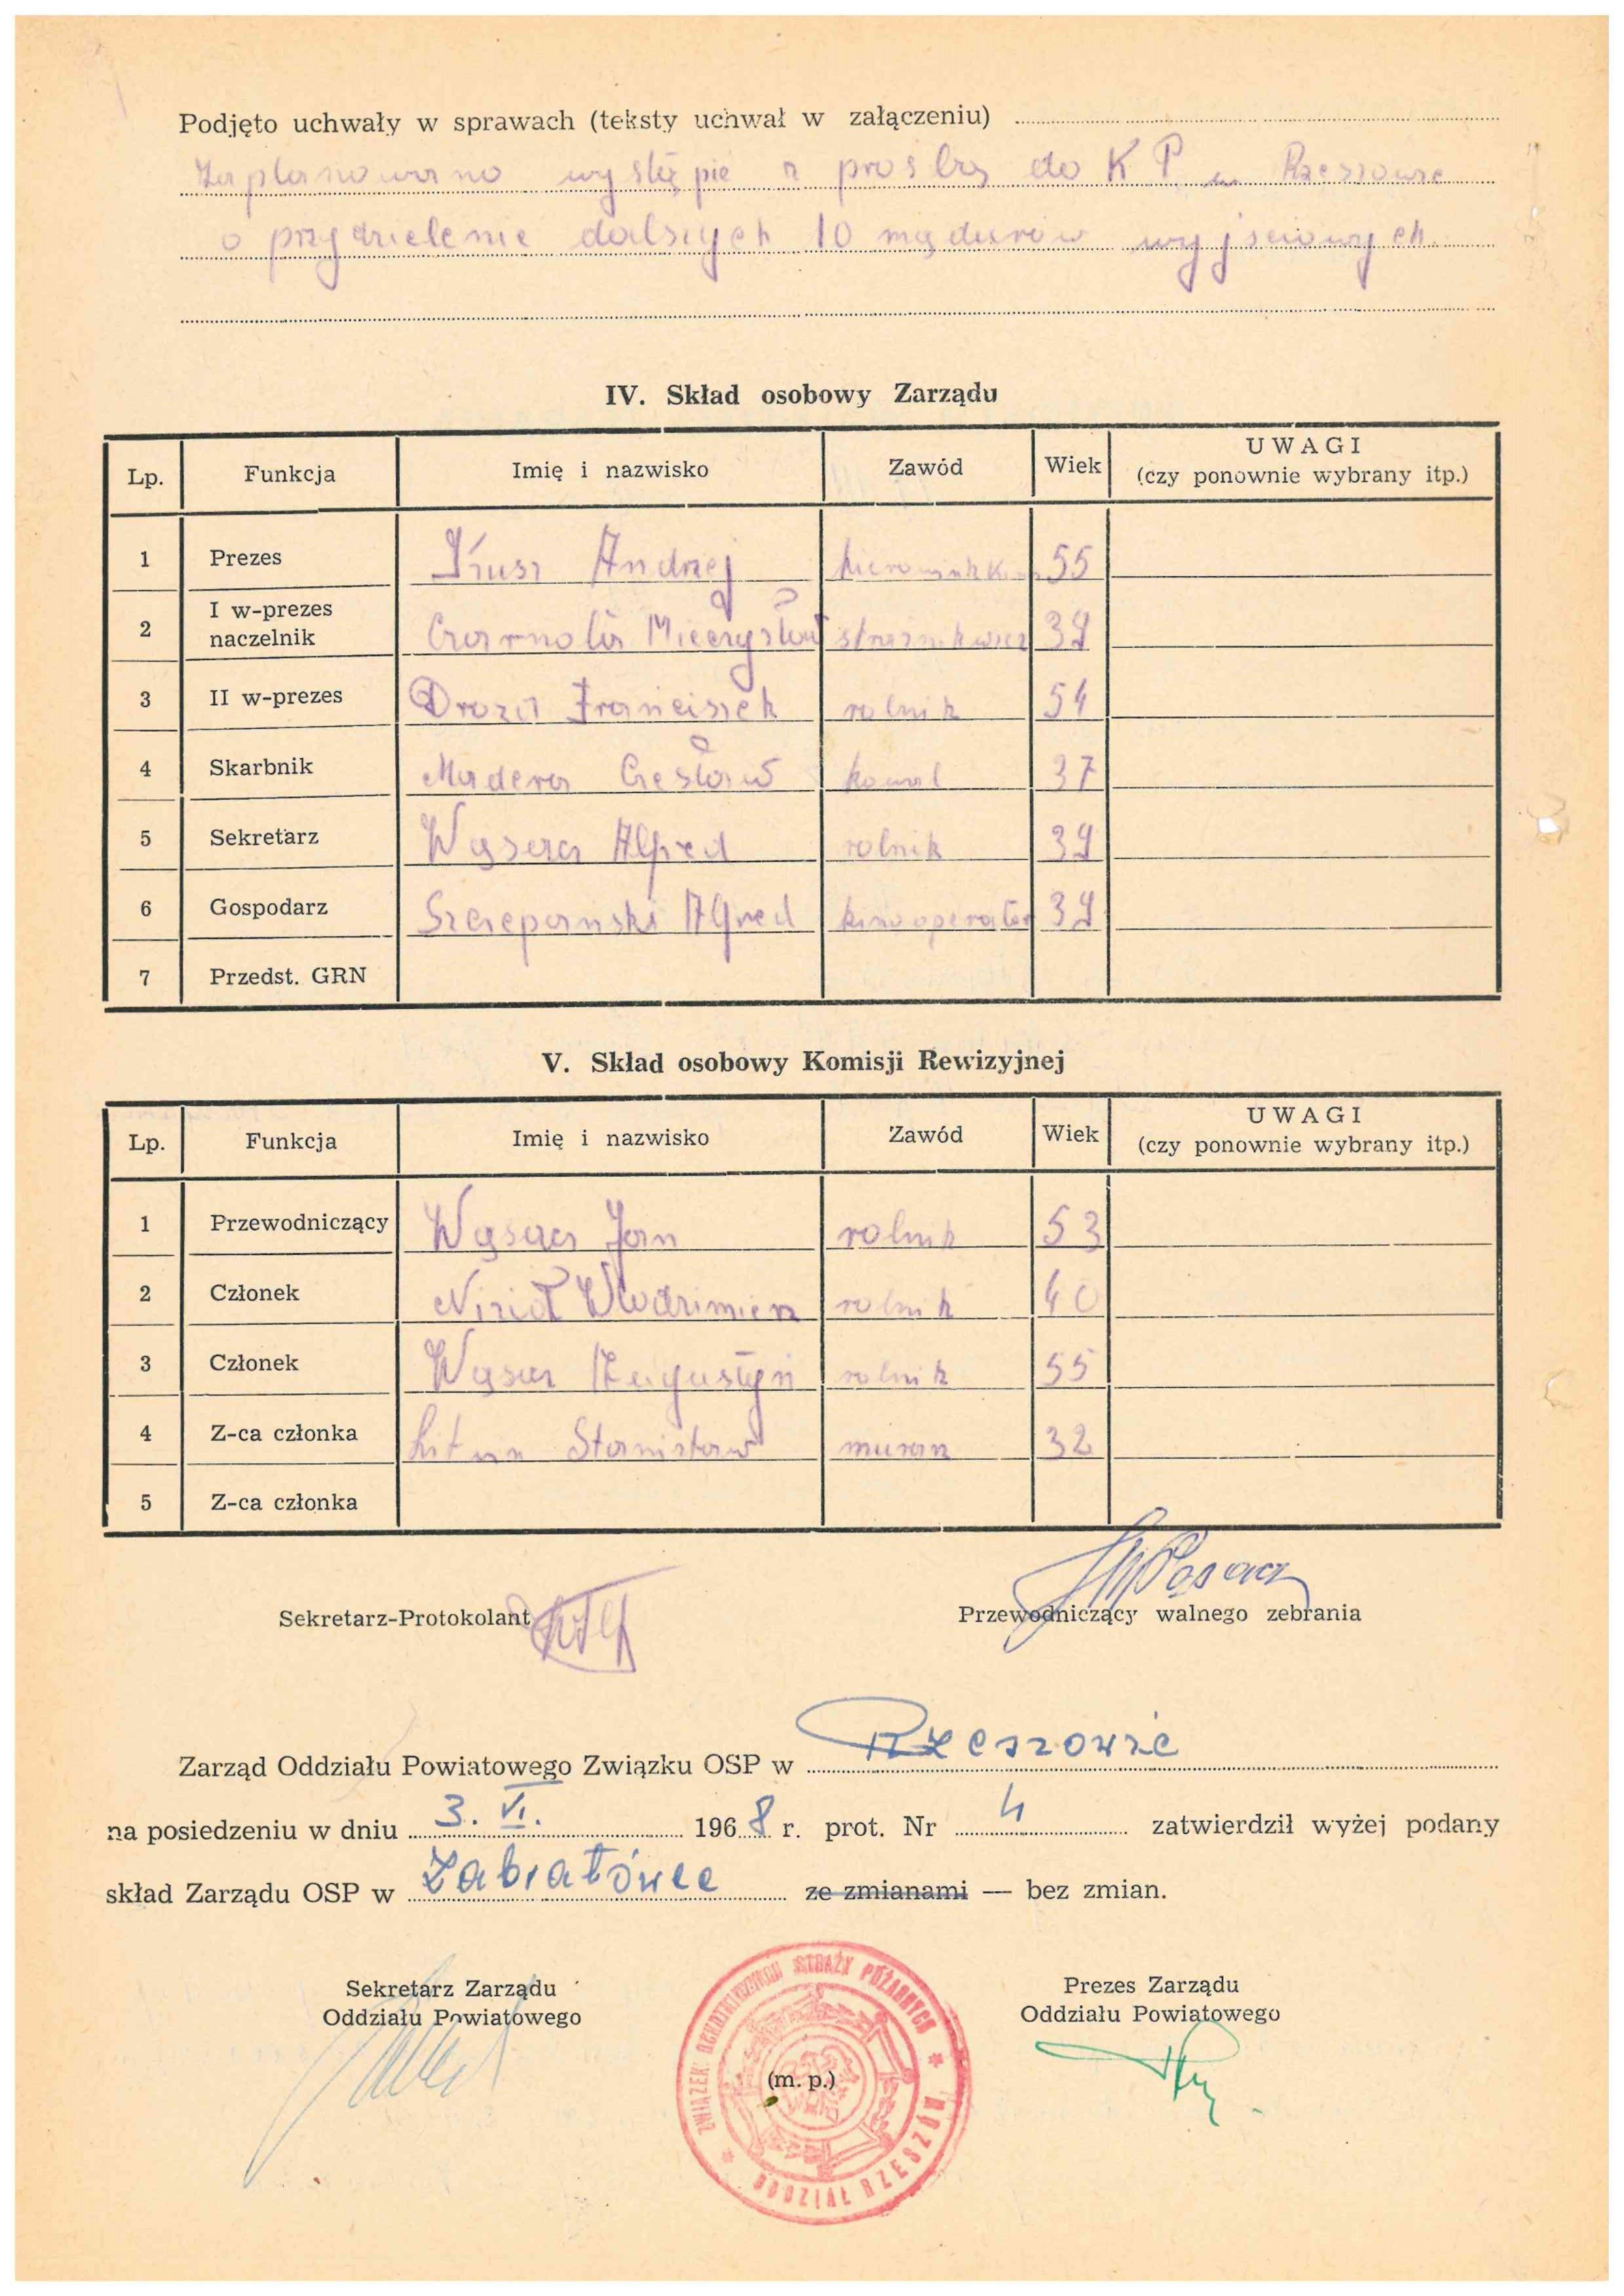 Podjęto uchwały w sprawach (teksty uchwał w załączeniu)
Zaplanowano wystąpie z prośbą do K P w Rzeszowie
o przydzielenie dalszych 10 mądurów wyjściowych.
IV. Skład osobowy Zarządu
Lp. Funkcja Imię i nazwisko Zawód Wiek UWAGI (czy ponownie wybrany itp.)
1 Prezes Kusz Andrzej 55
2 I w-prezes naczelnik Czarnota Mieczysław 39
3 II w-prezes Drozd Franciszek rolnik 54
4 Skarbnik Madera Czesław kowal 37
5 Sekretarz Wąsacz Alfred rolnik 39
6 Gospodarz Szczepański Alfred kinooperator 39
7 Przedst. GRN
V. Skład osobowy Komisji Rewizyjnej
Lp. Funkcja Imię i nazwisko Zawód Wiek UWAGI (czy ponownie wybrany itp.)
1 Przewodniczący Wąsacz Jan rolnik 53
2 Członek Nizioł Włodzimierz rolnik 40
3 Członek Wąsacz Augustyn rolnik 55
4 Z-ca członka Stanisław murarz 32
5 Z-ca członka
Sekretarz-Protokolant
Wąsacz
Przewodniczący walnego zebrania
Zarząd Oddziału Powiatowego Związku OSP w Rzeszowie
na posiedzeniu w dniu 3. VI. 1968 r. prot. Nr 4 zatwierdził wyżej podany
skład Zarządu OSP w Zabratówce ze zmianami — bez zmian.
Sekretarz Zarządu
Oddziału Powiatowego
Prezes Zarządu
Oddziału Powiatowego
ZWIĄZEK OCHOTNICZYCH STRAŻY POŻARNYCH
(m. p.)
ODDZIAŁ RZESZÓW